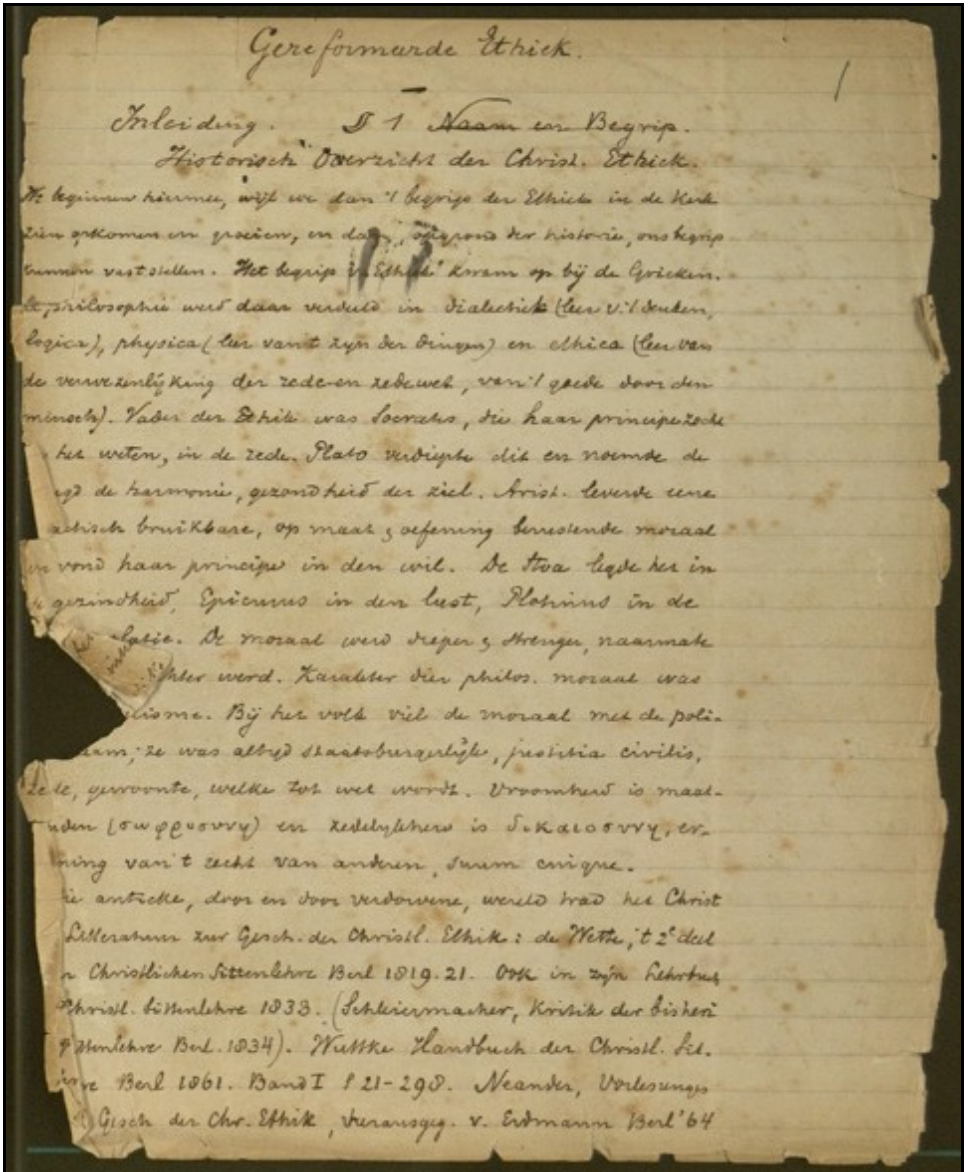 Gereformeerde Ethiek.
1
Inleiding. § 1 Naam en Begrip.
Historisch Overzicht der Christ. Ethiek.
We beginnen hiermee, wijl we dan 't begrip der Ethiek in de Kerk
zien opkomen en groeien, en dan, opgrond der historie, ons begrip
kunnen vaststellen. Het begrip v. Ethiek kwam op bij de Grieken.
De philosophie werd daar verdeeld in dialectiek (leer v. 't denken,
logica), physica (leer van 't zijn der dingen) en ethica (leer van
de verwezenlijking der zede en zedewet, van 't goede door den
mensch). Vader der Ethik was Socrates, die haar principe zocht
het weten, in de rede. Plato verdiepte dit en noemde de
de harmonie, gezondheid der ziel. Arist. leverde eene
bruikbare, op maat & oefening berustende moraal
vond haar principe in den wil. De Stoa legde het in
gezindheid, Epicurus in den lust, Plotinus in de
De moraal werd dieper & strenger, naarmate
werd. Karakter dier philos. moraal was
Bij het volk viel de moraal met de poli-
ze was altijd staatsburgerlijk, justitia civilis,
zede, gewoonte, welke tot wet wordt. Vroomheid is maat-
(σωφροσυνη) en zedelijkheid is δικαιοσυνη, er-
van 't recht van anderen, suum cuique.
antieke, door en door verdorvene, wereld trad het Christ
Litteratuur zur Gesch. der Christl. Ethik: de Wette, 't 2e deel
Christlichen Sittenlehre Berl 1819.21. Ook in zijn Lehrbuch
Christl. Sittenlehre 1833. (Schleiermacher, Kritik der bisheri
Sittenlehre Berl. 1834). Wuttke Handbuch der Christl. Sit.
Berl 1861. Band I § 21-298. Neander, Vorlesungen
Gesch der Chr. Ethik, herausgeg. v. Erdmann Berl '64